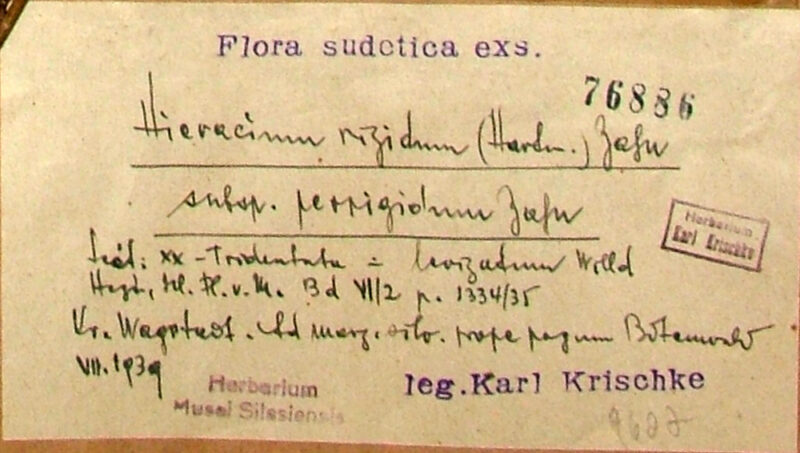 Flora sudetica exs.
76886
Hieracium rigidum (Hartm.) Zahn
subsp. perrigidum Zahn
Herbarium
Karl Krischke
Sect: XX - Tridentata = laevigatum Willd
Hegi, Ill. Fl. v. M. Bd VI/2 p. 1334/35
Kr. Wagstadt. Ad marg. silv. prope pagum Botenwald
VII. 1939
leg. Karl Krischke
Herbarium
Musei Silesiensis